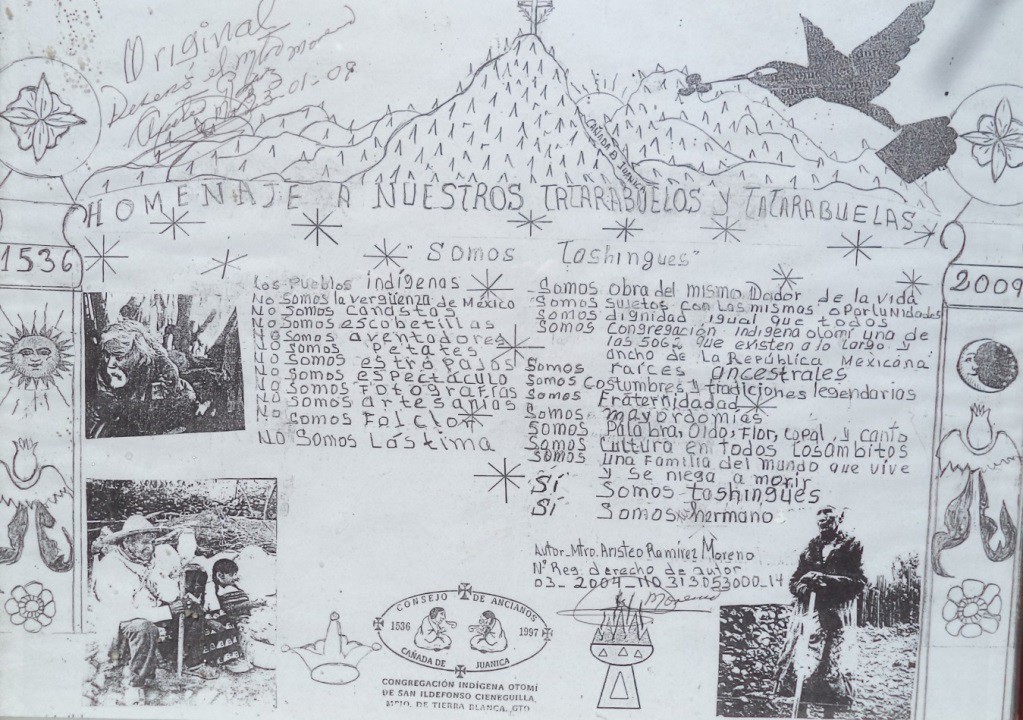 Original
Diseñó el mtro
23-01-09
CAÑADA D JUANICA
HOMENAJE A NUESTROS TATARABUELOS Y TATARABUELAS
1536
2009
"Somos Tashingues"
Los Pueblos indígenas
No Somos la vergüenza de Mexico
No Somos Canastas
No Somos escobetillas
No Somos aventadores
No Somos Petates
No Somos estropajos
No Somos espectáculo
No Somos Fotografías
No Somos artesanias
No Somos Folclor
No Somos Lástima
Somos obra del mismo Dador de la vida
Somos sujetos con las mismas oportunidades
Somos dignidad igual que todos
Somos Congregación indigena otomí una de
las 5062 que existen a lo largo y
ancho de La República Mexicana
Somos raíces ancestrales
Somos Costumbres y tradiciones legendarias
Somos Fraternidadad
Somos mayordomías
Somos Palabra, Oido, Flor, Copal, y canto
Somos Cultura en todos los ambitos
Somos una Familia del mundo que vive
y se niega a morir
Sí Somos tashingues
Sí Somos hermano
Autor_Mtro. Aristeo Ramírez Moreno
N° Reg. derecho de autor
03_2004_110313053000_14
CONSEJO DE ANCIANOS
1536 1997
CAÑADA DE JUANICA
CONGREGACIÓN INDÍGENA OTOMÍ
DE SAN ILDEFONSO CIENEGUILLA,
MPIO. DE TIERRA BLANCA, GTO